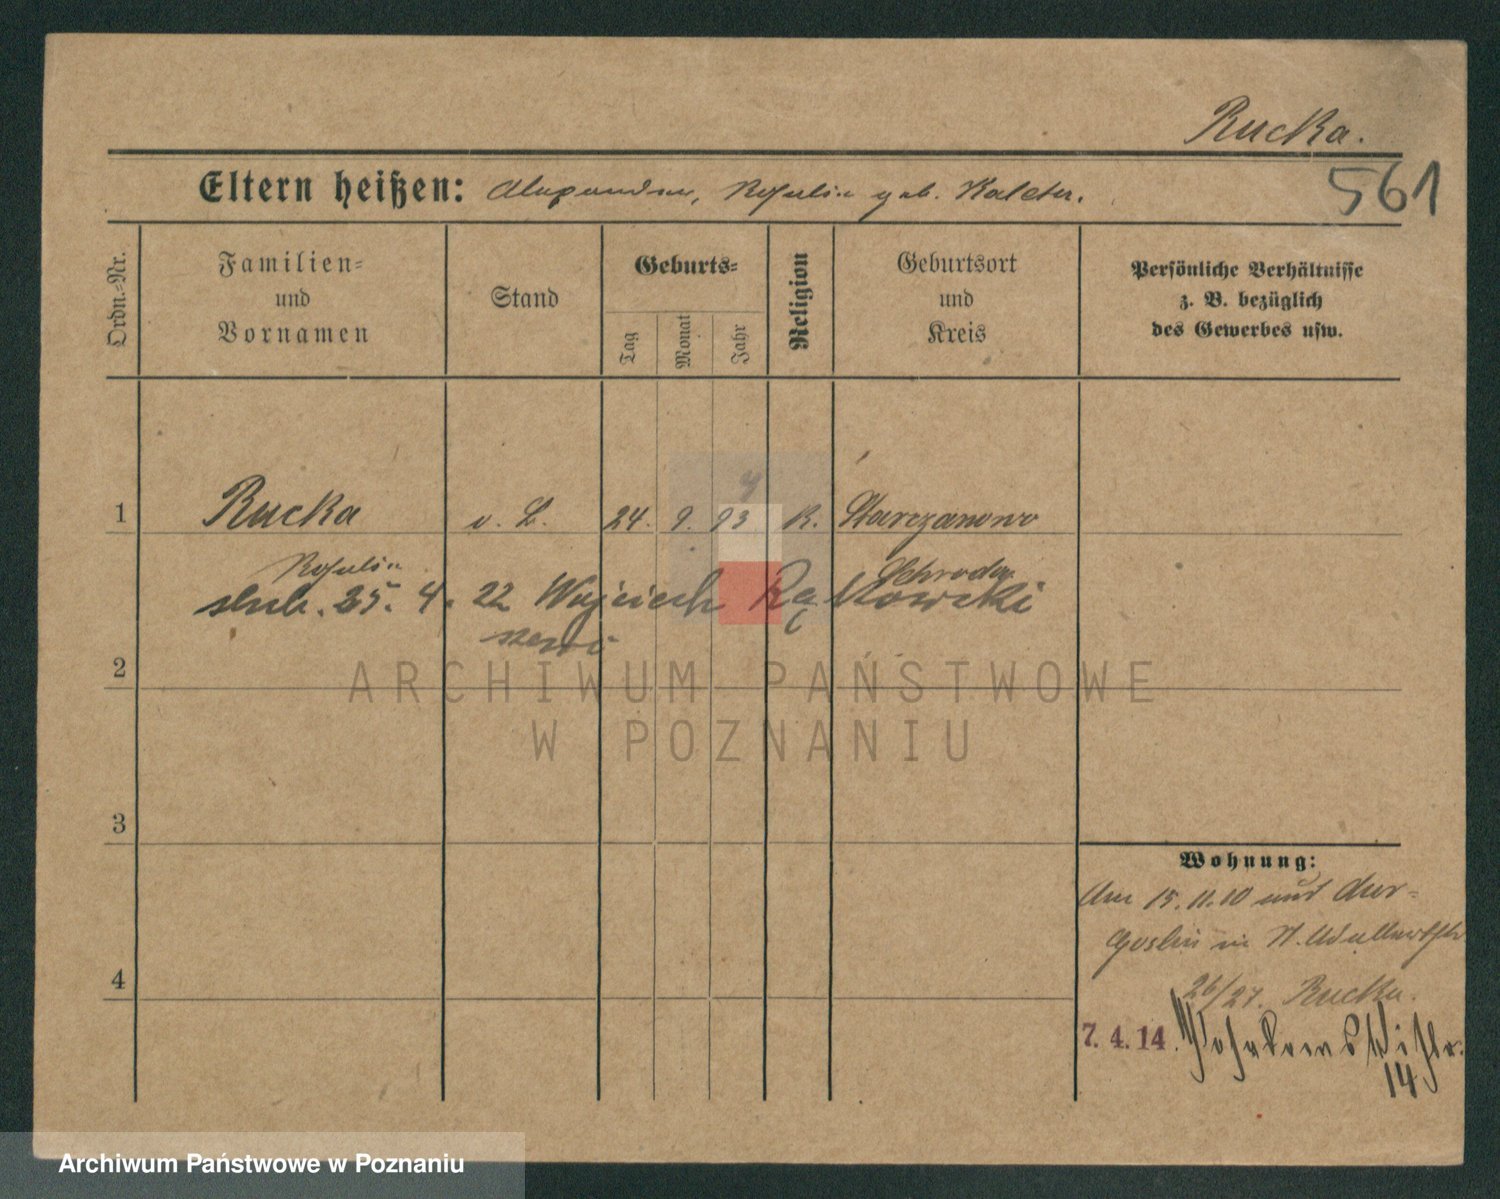 Rucka.
561
Eltern heißen: Rosalia geb.
Ordn.-Nr.
Familien- und Vornamen
Stand
Geburts-
Tag
Monat
Jahr
Religion
Geburtsort und Kreis
Persönliche Verhältnisse z. B. bezüglich des Gewerbes usw.
1 Rucka v. L. 24. 9. 93 K. Starczanowo
4
Rosalia Schroda
ślub. 25. 4. 22 Wojciech Rątkowski
2
szewc
3
4
Wohnung:
Am 15.11.10 aus Mur-
Goslin in
26/27. Rucka.
7. 4. 14.
14
ARCHIWUM PAŃSTWOWE
W POZNANIU
Archiwum Państwowe w Poznaniu